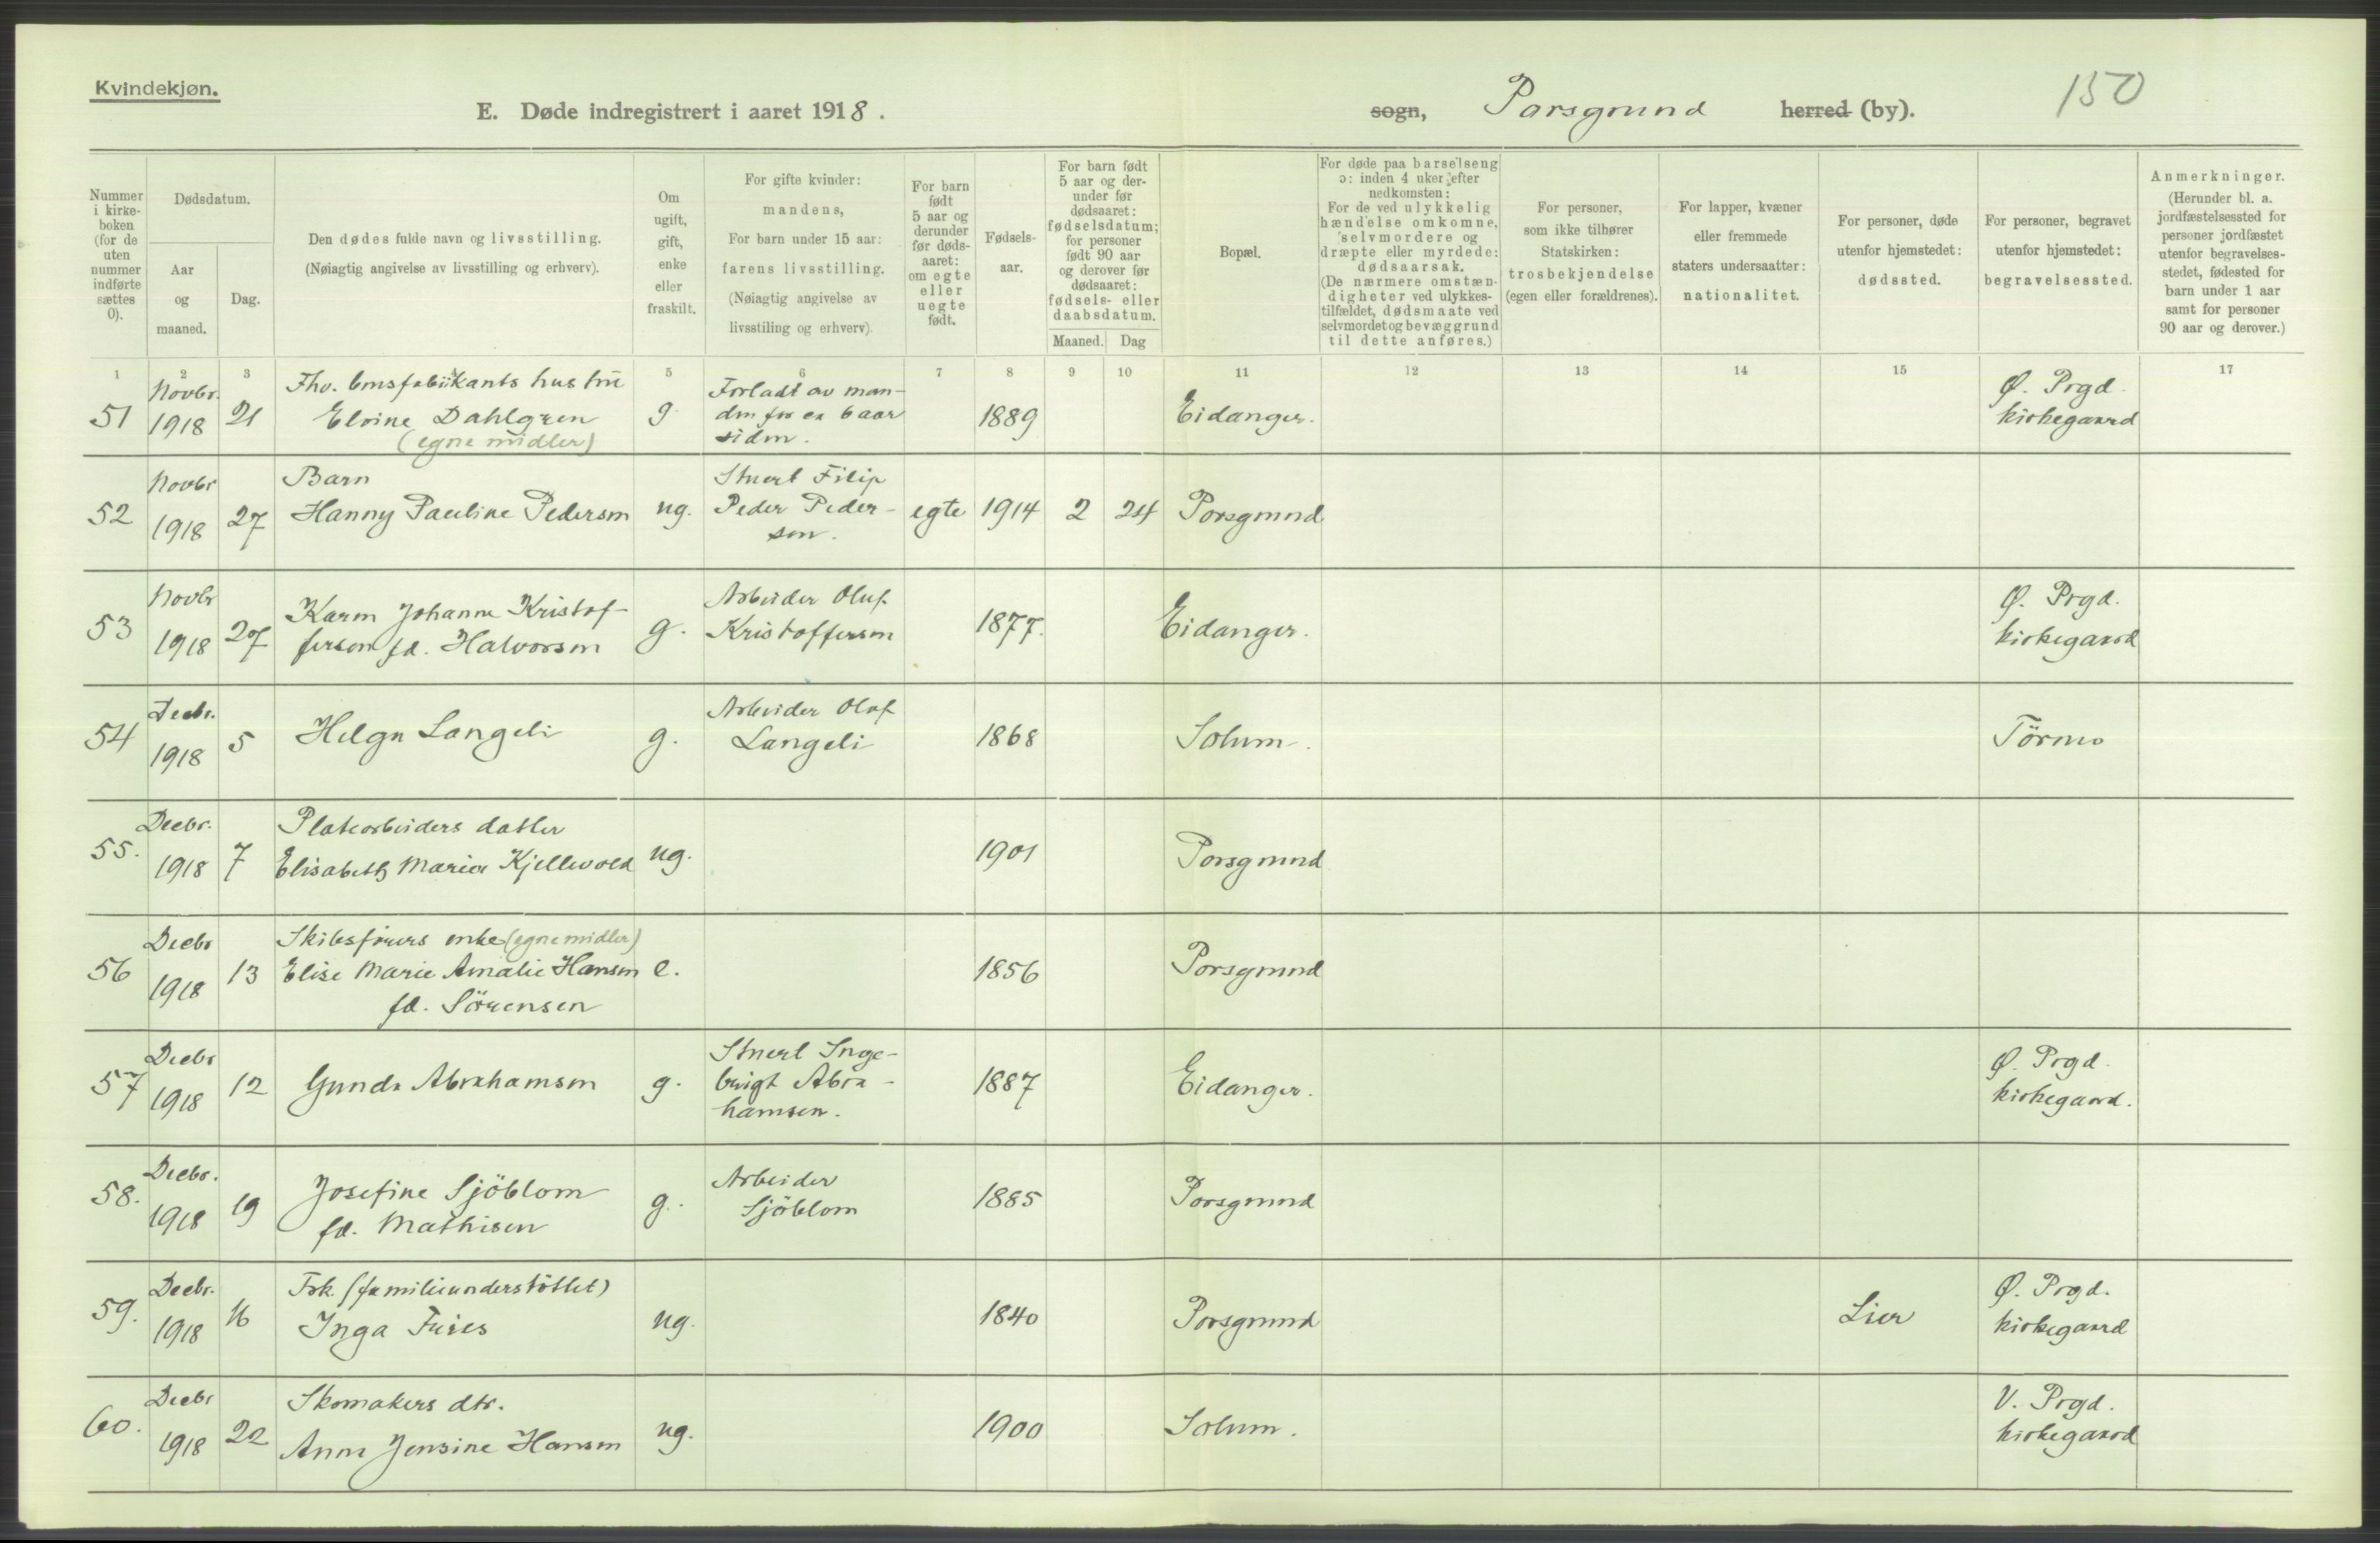 Kvindekjøn.
E. Døde indregistrert i aaret 1918.
sogn, Porsgrund herred (by).
150
Nummer i kirke-boken (for de uten nummer indførte sættes 0).
Dødsdatum.
Aar og maaned.
Dag.
Den dødes fulde navn og livsstilling.
(Nøiagtig angivelse av livsstilling og erhverv).
Om ugift, gift, enke eller fraskilt.
For gifte kvinder: mandens,
For barn under 15 aar: farens livsstilling.
(Nøiagtig angivelse av livsstiling og erhverv).
For barn født 5 aar og derunder før døds-aaret: om egte eller uegte født.
Fødsels-aar.
For barn født 5 aar og der-under før dødsaaret: fødselsdatum; for personer født 90 aar og derover før dødsaaret: fødsels- eller daabsdatum.
Maaned. Dag
Bopæl.
For døde paa barselseng ɔ: inden 4 uker efter nedkomsten:
For de ved ulykkelig hændelse omkomne, selvmordere og dræpte eller myrdede: dødsaarsak.
(De nærmere omstæn-digheter ved ulykkes-tilfældet, dødsmaate ved selvmordet og bevæggrund til dette anføres.)
For personer, som ikke tilhører Statskirken: trosbekjendelse (egen eller forældrenes).
For lapper, kvæner eller fremmede staters undersaatter: nationalitet.
For personer, døde utenfor hjemstedet: dødssted.
For personer, begravet utenfor hjemstedet: begravelsessted.
Anmerkninger.
(Herunder bl. a. jordfæstelsessted for personer jordfæstet utenfor begravelses-stedet, fødested for barn under 1 aar samt for personer 90 aar og derover.)
1 2 3 5 6 7 8 9 10 11 12 13 14 15 17
51 Novbr. 1918 21
Fhv. hustru
Eloine Dahlgren
(egne midler)
g.
Forladt av man-
den for ca 6 aar
siden.
1889 Eidanger.
Ø. Prgd.
kirkegaard
52 Novbr 1918 27
Barn
Hanny Pauline Pedersen
ug.
Stuert Filip
Peder Peder-
sen.
egte 1914 2 24 Porsgrund
53 Novbr 1918 27
Karen Johanne Kristof-
fersen fd. Halvorsen
g.
Arbeider Oluf
Kristoffersen
1877. Eidanger.
Ø. Prgd.
kirkegaard
54 Decbr. 1918 5
Helga Langeli
g.
Arbeider Olaf
Langeli
1868 Solum.
Törmo
55. Decbr. 1918 7
Platearbeiders datter
Elisabeth Maria Kjellevold
ug.
1901 Porsgrund
56 Decbr 1918 13
Skibsförers enke (egne midler)
Elise Marie Amalie Hansen
fd. Sörensen
e.
1856 Porsgrund
57 Decbr 1918 12
Gunda Abrahamsen
g.
Stuert Inge-
brigt Abra-
hamsen.
1887 Eidanger.
Ø. Prgd.
kirkegaard.
58. Decbr. 1918 19
Josefine Sjöblom
fd. Mathisen
g.
Arbeider
Sjöblom
1885 Porsgrund
59. Decbr. 1918 16
Frk. (familieunderstöttet)
Inga
ug.
1840 Porsgrund
Lier
Ø. Prgd.
kirkegaard
60. Decbr 1918 22
Skomakers dtr.
Anna Jensine Hansen
ug.
1900 Solum.
V. Prgd.
kirkegaard